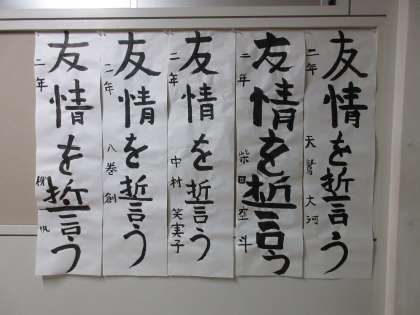 友情を誓う
二年 天鷲 大河
友情を誓う
二年 柴田 塁斗
友情を誓う
二年 中村 笑実子
友情を誓う
二年 八巻 創
友情を誓う
二年